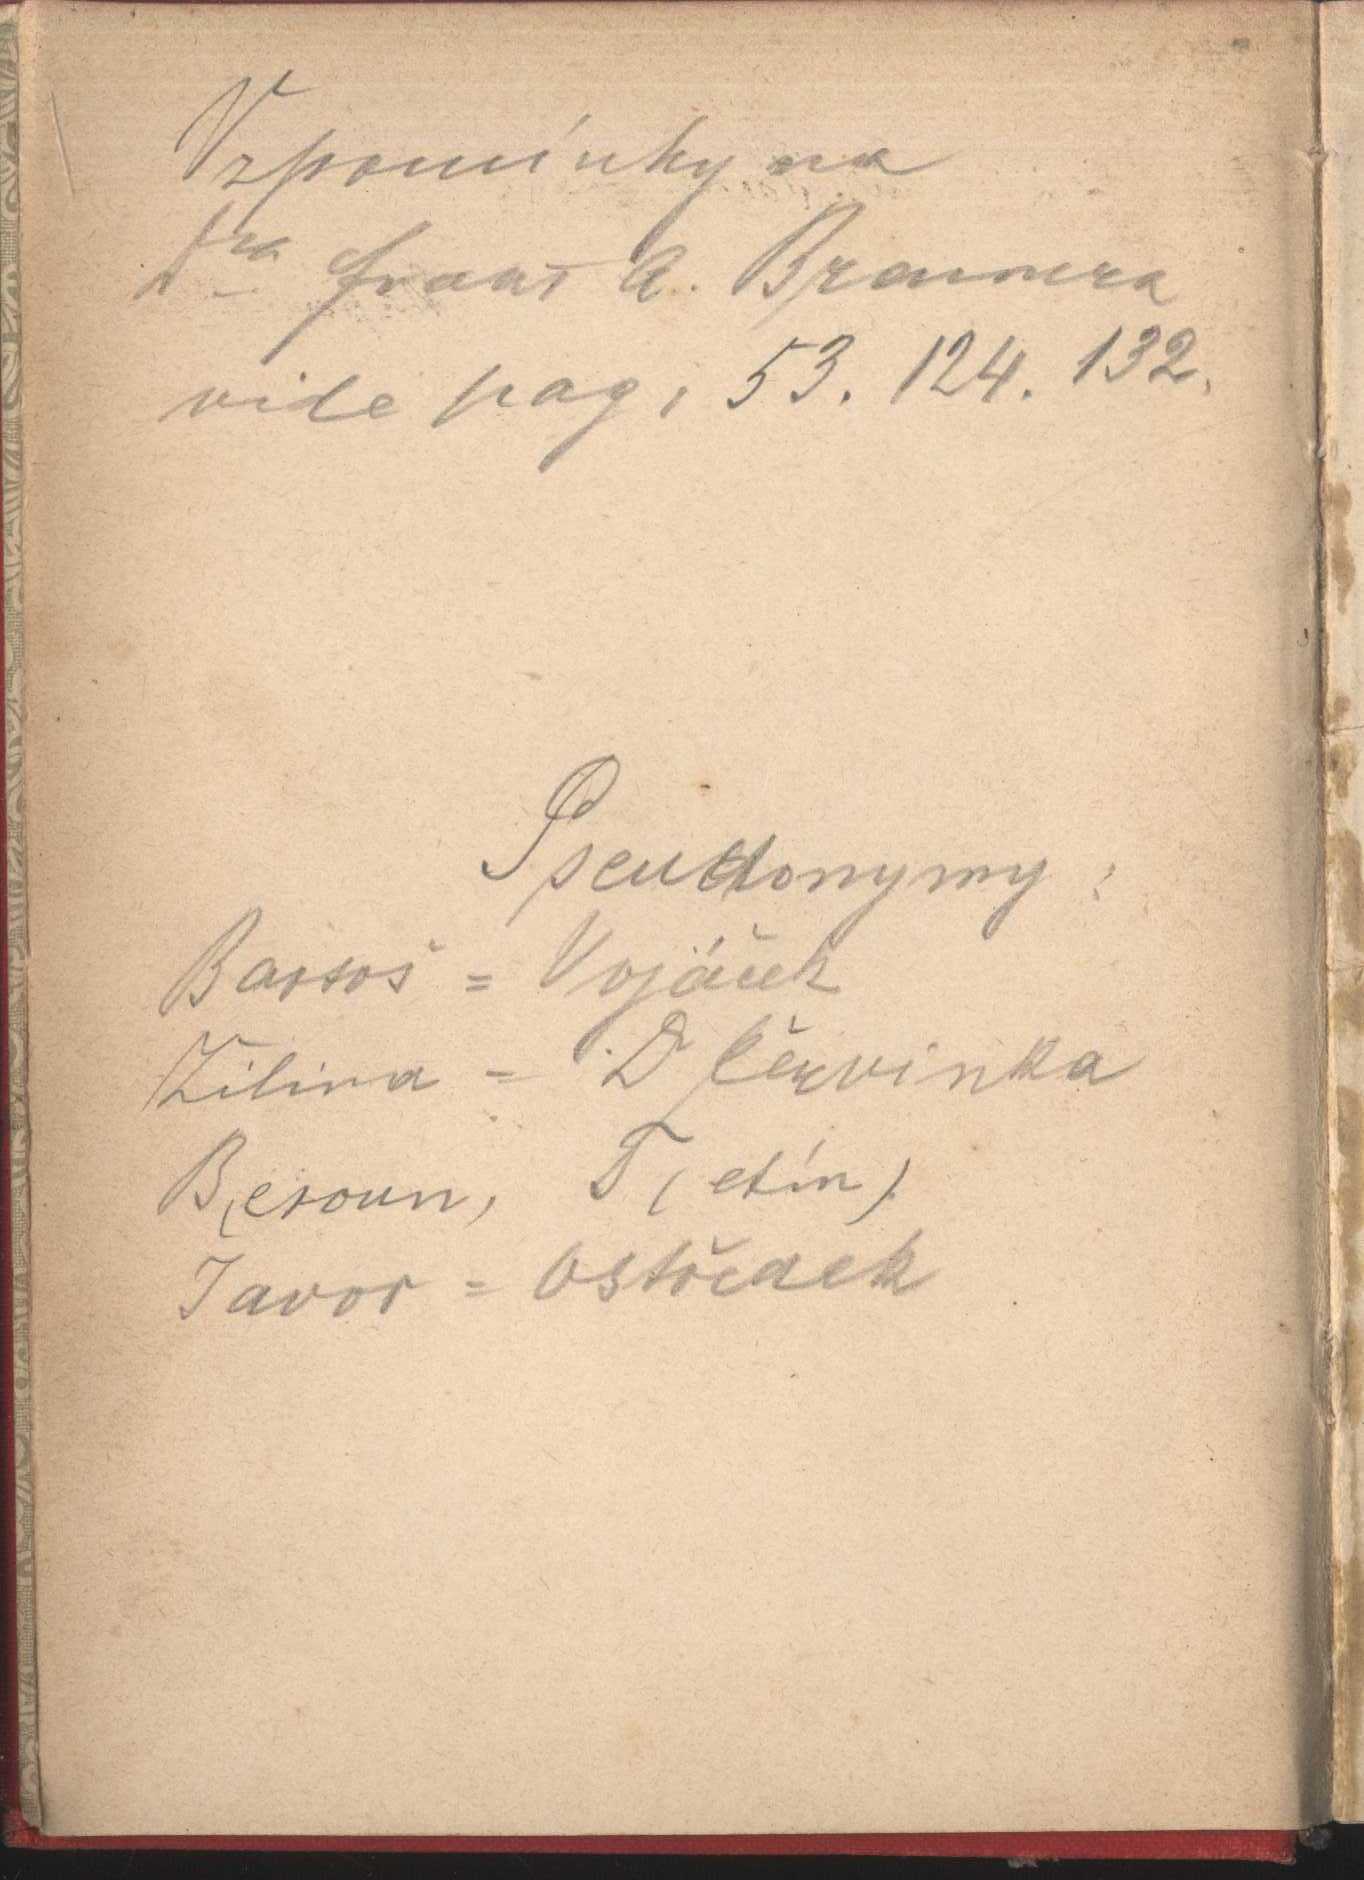 Vzpomínky na
Dra Frant A. Braunera
vide pag, 53. 124. 132.
Pseudonymy:
Bartoš = Vojáček
Žilina = D Červinka
B(eroun, T(etín)
Javor = Ostředek